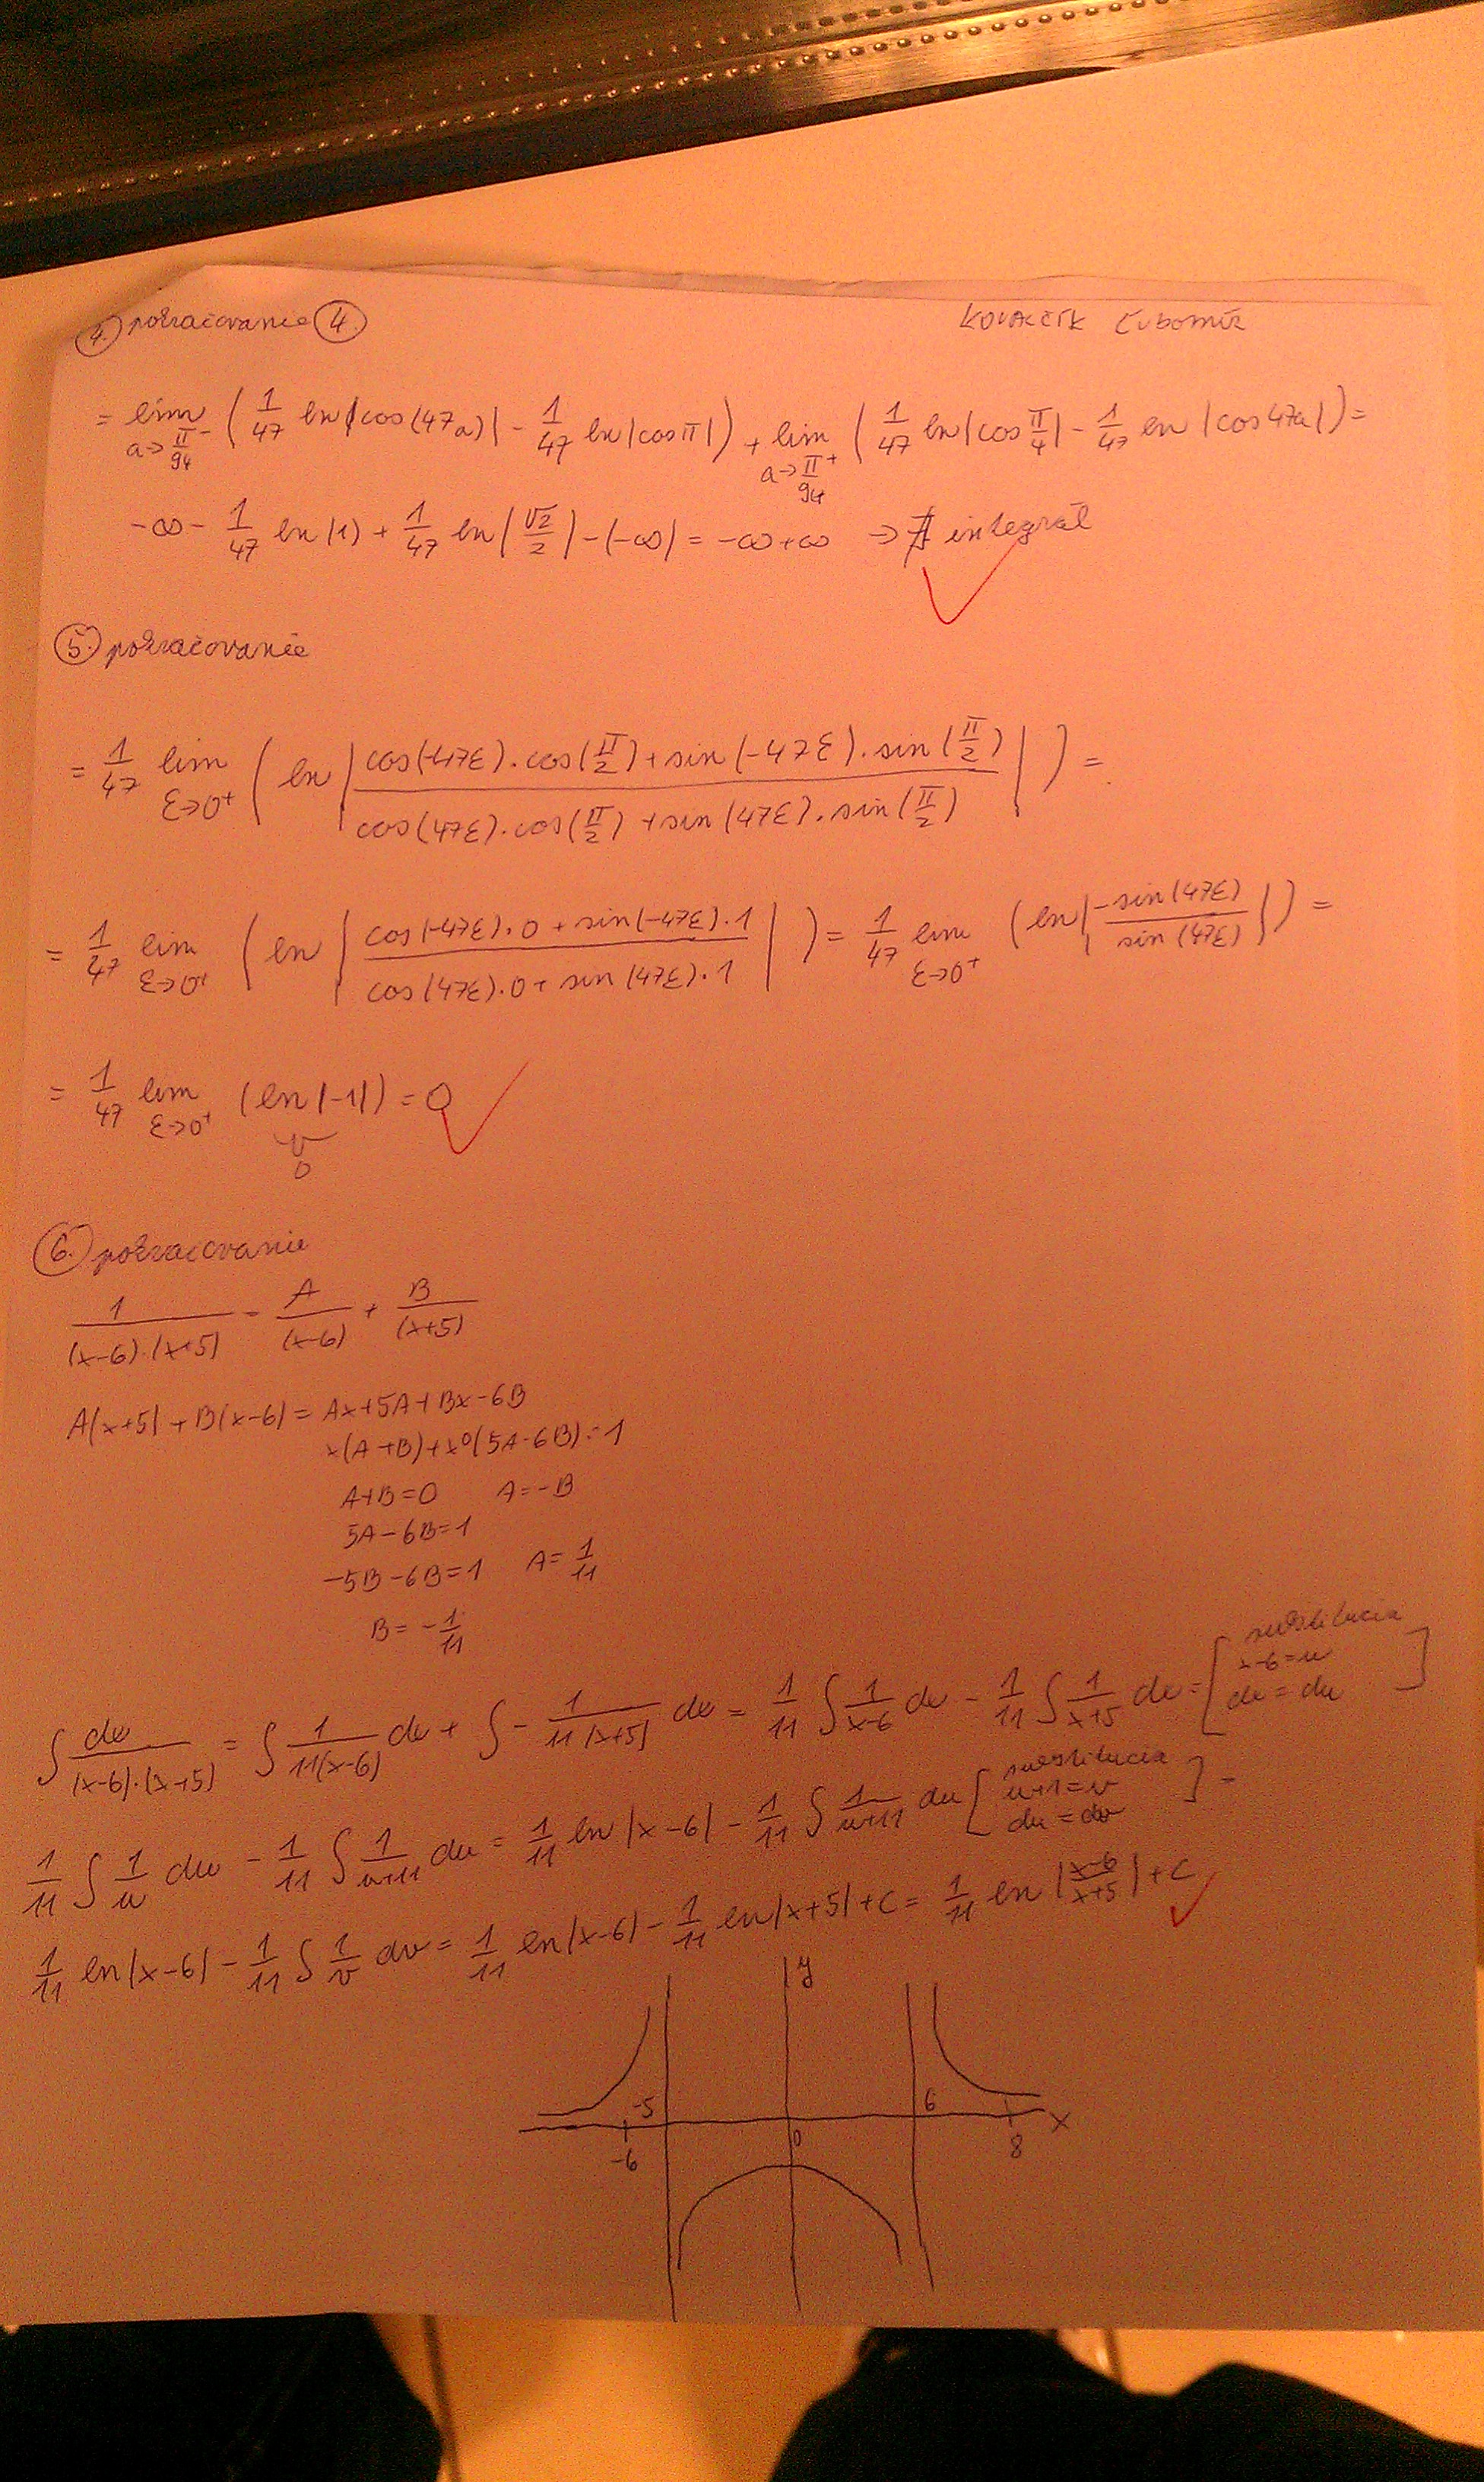 4.) pokračovanie 4.
KOVALČÍK Ľubomír
= lim a→π/94⁻ (1/47 ln|cos(47a)| - 1/47 ln|cosπ|) + lim a→π/94⁺ (1/47 ln|cos π/4| - 1/47 ln|cos47a|) =
-∞ - 1/47 ln|1| + 1/47 ln|√2/2| - (-∞) = -∞+∞ → ∄ integrál
5.) pokračovanie
= 1/47 lim ε→0⁺ ( ln | (cos(-47ε).cos(π/2)+sin(-47ε).sin(π/2)) / (cos(47ε).cos(π/2)+sin(47ε).sin(π/2)) | ) =
= 1/47 lim ε→0⁺ ( ln | (cos(-47ε).0+sin(-47ε).1) / (cos(47ε).0+sin(47ε).1) | ) = 1/47 lim ε→0⁺ (ln|-sin(47ε)/sin(47ε)|) =
= 1/47 lim ε→0⁺ (ln|-1|) = 0
0
6.) pokračovanie
1/((x-6).(x+5)) = A/(x-6) + B/(x+5)
A(x+5)+B(x-6) = Ax+5A+Bx-6B
x(A+B)+x⁰(5A-6B)=1
A+B=0 A=-B
5A-6B=1
-5B-6B=1 A=1/11
B=-1/11
∫ dx/((x-6).(x+5)) = ∫ 1/(11(x-6)) dx + ∫ - 1/(11(x+5)) dx = 1/11 ∫ 1/(x-6) dx - 1/11 ∫ 1/(x+5) dx = [substitúcia x-6=u dx=du]
1/11 ∫ 1/u du - 1/11 ∫ 1/(u+11) du = 1/11 ln|x-6| - 1/11 ∫ 1/(u+11) du [substitúcia u+11=v du=dv] =
1/11 ln|x-6| - 1/11 ∫ 1/v dv = 1/11 ln|x-6| - 1/11 ln|x+5|+c = 1/11 ln|(x-6)/(x+5)|+c
y
-5 6
x
-6 0 8